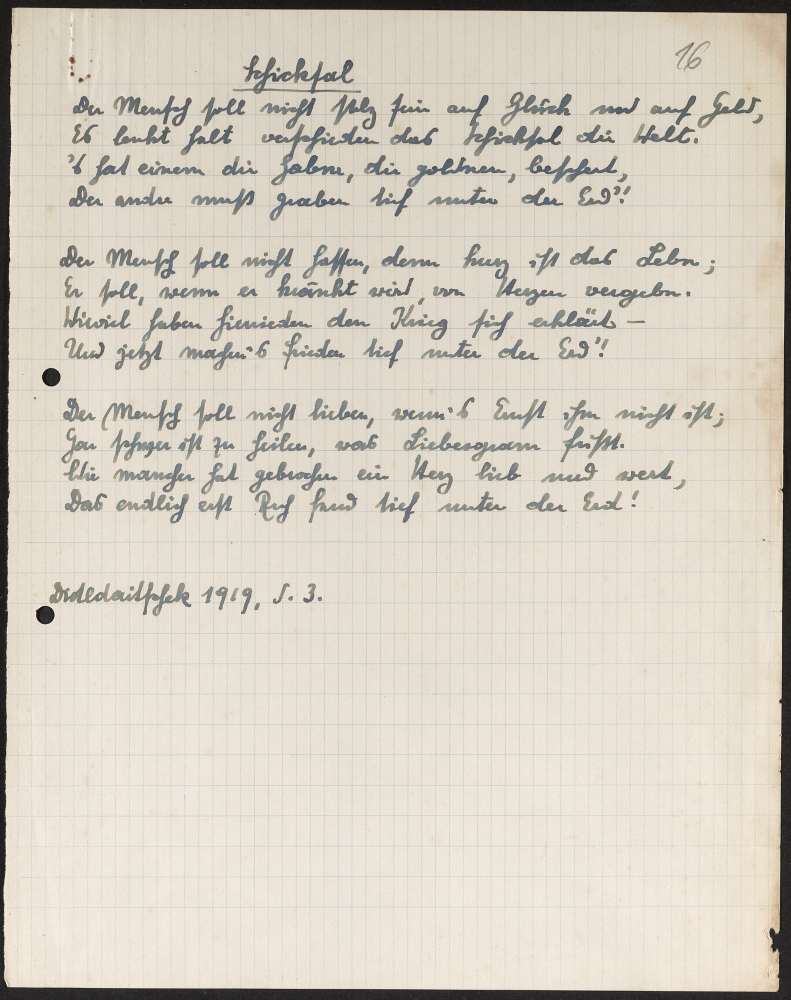 16
Schicksal
Der Mensch soll nicht stolz sein auf Glück und auf Geld,
Es lenkt halt verschieden das Schicksal die Welt.
's hat einem die Gaben, die goldnen, beschert,
Der andre muß graben tief unter der Erd'!
Der Mensch soll nicht hassen, denn kurz ist das Leben;
Er soll, wenn er kränkt wird, von Herzen vergeben.
Wieviel haben hienieden den Krieg sich erklärt —
Und jetzt machen's Frieden tief unter der Erd'!
Der Mensch soll nicht lieben, wenn's Ernst ihm nicht ist;
Gar schwer ist zu heilen, was Liebesgram frißt.
Wie mancher hat gebrochen ein Herz lieb und wert,
Das endlich erst Ruh fand tief unter der Erd!
1919, S. 3.